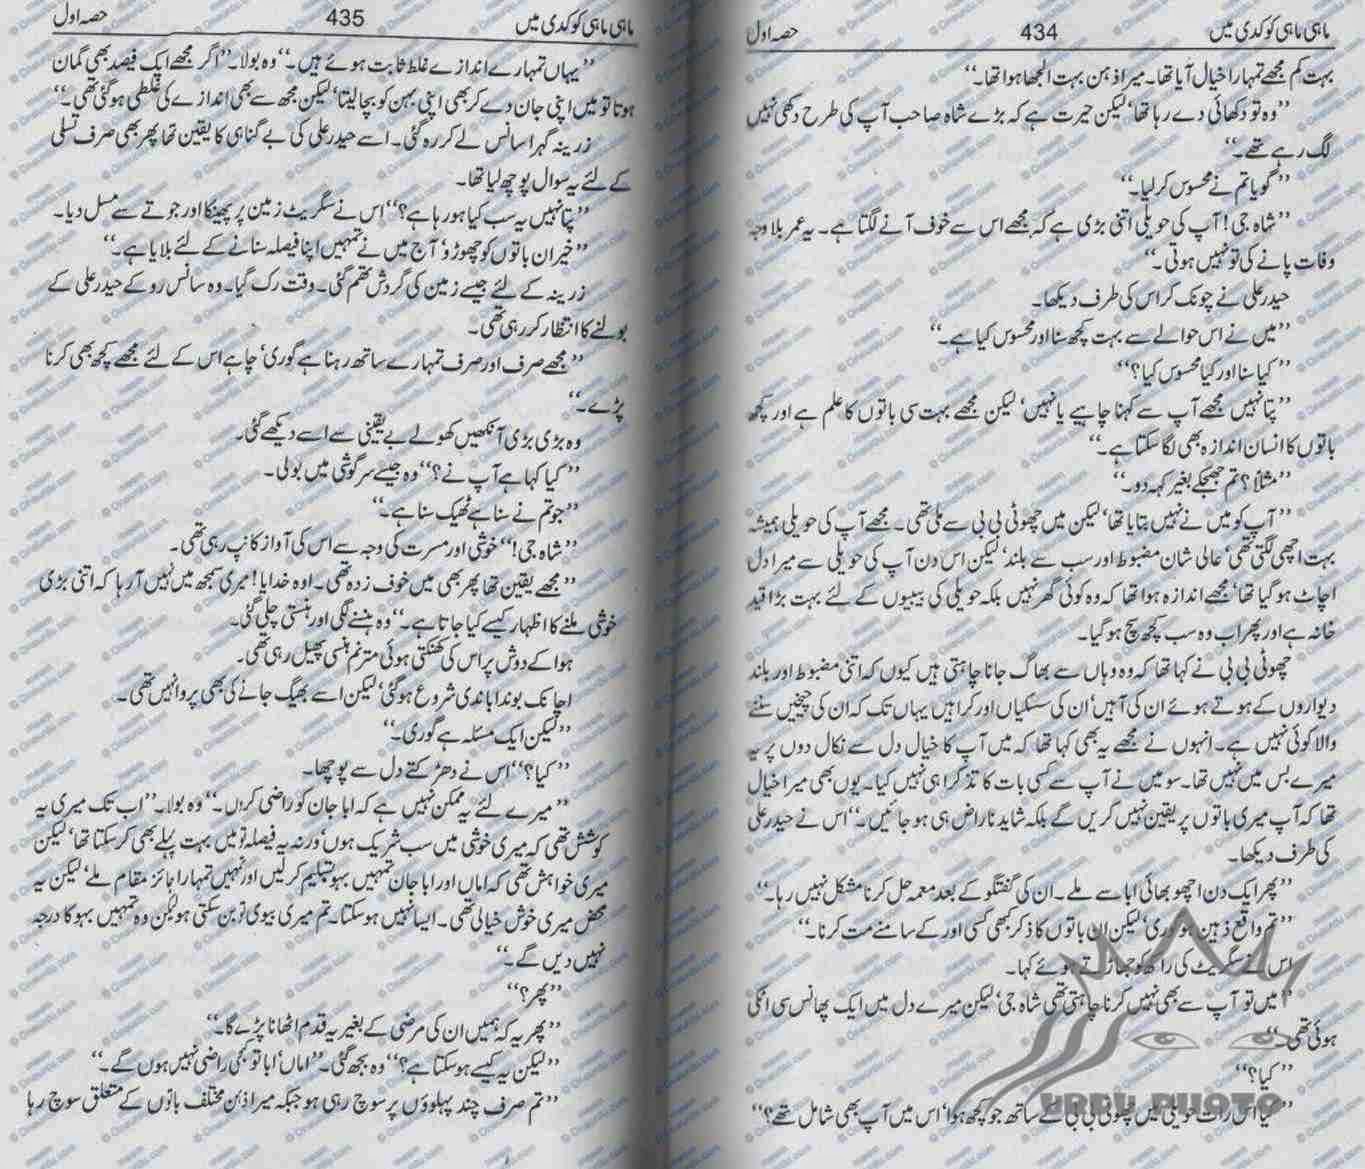 ماہی ماہی کوکدی میں 434 حصہ اول
بہت کم مجھے تمہارا خیال آیا تھا۔ میرا ذہن بہت الجھا ہوا تھا۔‘‘
’’وہ تو دکھائی دے رہا تھا‘ لیکن حیرت ہے کہ بڑے شاہ صاحب آپ کی طرح دکھی نہیں
لگ رہے تھے۔‘‘
’’گویا تم نے محسوس کر لیا۔‘‘
’’شاہ جی! آپ کی حویلی اتنی بڑی ہے کہ مجھے اس سے خوف آنے لگتا ہے۔ یہ عمر بلاوجہ
وفات پانے کی تو نہیں ہوتی۔‘‘
حیدر علی نے چونک کر اس کی طرف دیکھا۔
’’میں نے اس حوالے سے بہت کچھ سنا اور محسوس کیا ہے۔‘‘
’’کیا سنا اور کیا محسوس کیا؟‘‘
’’پتا نہیں مجھے آپ سے کہنا چاہیے یا نہیں‘ لیکن مجھے بہت سی باتوں کا علم ہے اور کچھ
باتوں کا انسان اندازہ بھی لگا سکتا ہے۔‘‘
’’مثلاً؟ تم جھجکے بغیر کہہ دو۔‘‘
’’آپ کو میں نے نہیں بتایا تھا‘ لیکن میں چھوٹی بی بی سے ملی تھی۔ مجھے آپ کی حویلی ہمیشہ
بہت اچھی لگتی تھی‘ عالی شان مضبوط اور سب سے بلند‘ لیکن اس دن آپ کی حویلی سے میرا دل
اچاٹ ہو گیا تھا‘ مجھے اندازہ ہوا تھا کہ وہ کوئی گھر نہیں بلکہ حویلی کی بیبیوں کے لئے بہت بڑا قید
خانہ ہے اور پھر اب وہ سب کچھ سچ ہو گیا۔
چھوٹی بی بی نے کہا تھا کہ وہ وہاں سے بھاگ جانا چاہتی ہیں کیوں کہ اتنی مضبوط اور بلند
دیواروں کے ہوتے ہوئے ان کی آہیں‘ ان کی سسکیاں اور کراہیں یہاں تک کہ ان کی چیخیں سننے
والا کوئی نہیں ہے۔ انہوں نے مجھے یہ بھی کہا تھا کہ میں آپ کا خیال دل سے نکال دوں پر یہ
میرے بس میں نہیں تھا۔ سو میں نے آپ سے کسی بات کا تذکرا ہی نہیں کیا۔ یوں بھی میرا خیال
تھا کہ آپ میری باتوں پر یقین نہیں کریں گے بلکہ شاید ناراض ہی ہو جائیں۔‘‘ اس نے حیدر علی
کی طرف دیکھا۔
’’پھر ایک دن اچھو بھائی ابا سے ملے۔ ان کی گفتگو کے بعد معمہ حل کرنا مشکل نہیں رہا۔‘‘
’’تم واقع ذہین ہو گوری‘ لیکن ان باتوں کا ذکر کبھی کسی اور کے سامنے مت کرنا۔‘‘
اس نے سگریٹ کی راکھ کو جھاڑتے ہوئے کہا۔
’’میں تو آپ سے بھی نہیں کرنا چاہتی تھی شاہ جی‘ لیکن میرے دل میں ایک پھانس سی اٹکی
ہوئی تھی۔‘‘
’’کیا؟‘‘
’’کیا اس رات حویلی میں چھوٹی بی بی کے ساتھ جو کچھ ہوا‘ اس میں آپ بھی شامل تھے؟‘‘
URDU PHOTO
ماہی ماہی کوکدی میں 435 حصہ اول
’’یہاں تمہارے اندازے غلط ثابت ہوئے ہیں۔‘‘ وہ بولا۔ ’’اگر مجھے ایک فیصد بھی گمان
ہوتا تو میں اپنی جان دے کر بھی اپنی بہن کو بچا لیتا‘ لیکن مجھ سے بھی اندازے کی غلطی ہو گئی تھی۔‘‘
زرینہ گہرا سانس لے کر رہ گئی۔ اسے حیدر علی کی بے گناہی کا یقین تھا پھر بھی صرف تسلی
کے لئے یہ سوال پوچھ لیا تھا۔
’’پتا نہیں یہ سب کیا ہو رہا ہے؟‘‘ اس نے سگریٹ زمین پر پھینکا اور جوتے سے مسل دیا۔
’’خیر ان باتوں کو چھوڑو‘ آج میں نے تمہیں اپنا فیصلہ سنانے کے لئے بلایا ہے۔‘‘
زرینہ کے لئے جیسے زمین کی گردش تھم گئی۔ وقت رک گیا۔ وہ سانس روکے حیدر علی کے
بولنے کا انتظار کر رہی تھی۔
’’مجھے صرف اور صرف تمہارے ساتھ رہنا ہے گوری‘ چاہے اس کے لئے مجھے کچھ بھی کرنا
پڑے۔‘‘
وہ بڑی بڑی آنکھیں کھولے بے یقینی سے اسے دیکھے گئی۔
’’کیا کہا ہے آپ نے؟‘‘ وہ جیسے سرگوشی میں بولی۔
’’جو تم نے سنا ہے ٹھیک سنا ہے۔‘‘
’’شاہ جی!‘‘ خوشی اور مسرت کی وجہ سے اس کی آواز کانپ رہی تھی۔
’’مجھے یقین تھا پھر بھی میں خوف زدہ تھی۔ اوہ خدایا! میری سمجھ میں نہیں آ رہا کہ اتنی بڑی
خوشی ملنے کا اظہار کیسے کیا جاتا ہے۔‘‘ وہ ہنسنے لگی اور ہنستی چلی گئی۔
ہوا کے دوش پر اس کی کھنکتی ہوئی مترنم ہنسی پھیل رہی تھی۔
اچانک بوندا باندی شروع ہو گئی‘ لیکن اسے بھیگ جانے کی بھی پروا نہیں تھی۔
’’لیکن ایک مسئلہ ہے گوری۔‘‘
’’کیا؟‘‘ اس نے دھڑکتے دل سے پوچھا۔
’’میرے لئے یہ ممکن نہیں ہے کہ ابا جان کو راضی کروں۔‘‘ وہ بولا۔ ’’اب تک میری یہ
کوشش تھی کہ میری خوشی میں سب شریک ہوں‘ ورنہ یہ فیصلہ تو میں بہت پہلے بھی کر سکتا تھا‘ لیکن
میری خواہش تھی کہ اماں اور ابا جان تمہیں بہو تسلیم کر لیں اور تمہیں تمہارا جائز مقام ملے‘ لیکن یہ
محض میری خوش خیالی تھی۔ ایسا نہیں ہو سکتا۔ تم میری بیوی تو بن سکتی ہو لیکن وہ تمہیں بہو کا درجہ
نہیں دیں گے۔‘‘
’’پھر؟‘‘
’’پھر یہ کہ ہمیں ان کی مرضی کے بغیر یہ قدم اٹھانا پڑے گا۔‘‘
’’لیکن یہ کیسے ہو سکتا ہے؟‘‘ وہ بجھ گئی۔ ’’اماں‘ ابا تو کبھی راضی نہیں ہوں گے۔‘‘
’’تم صرف چند پہلوؤں پر سوچ رہی ہو جبکہ میرا ذہن مختلف باتوں کے متعلق سوچ رہا